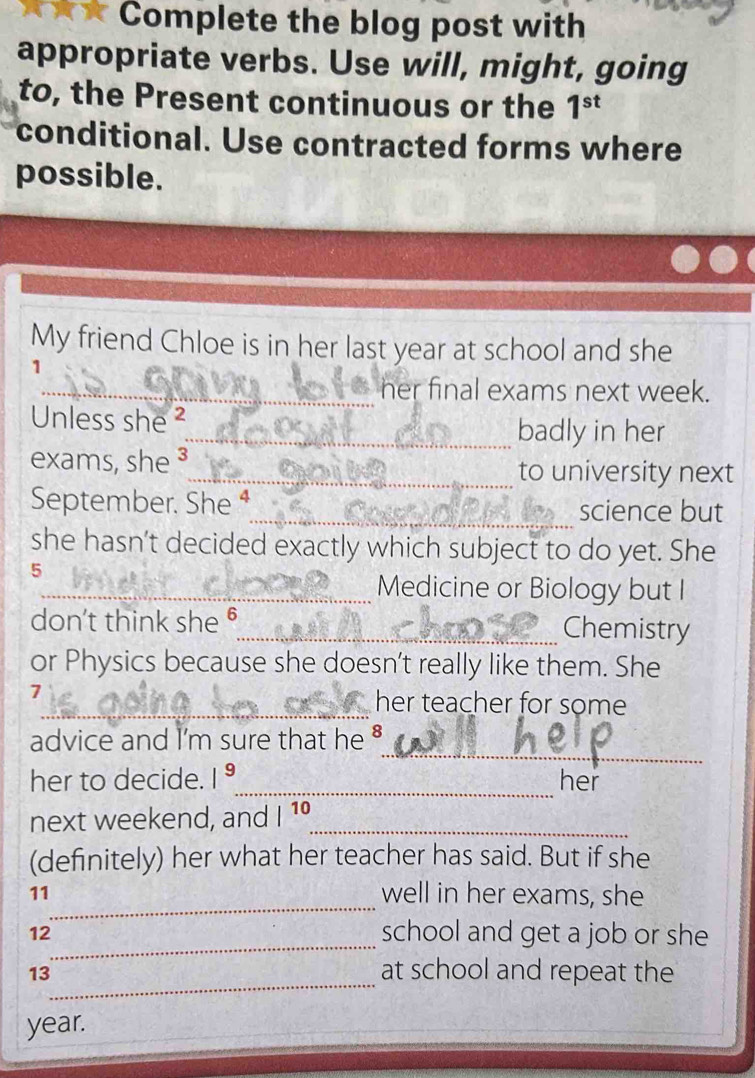 Complete the blog post with
appropriate verbs. Use will, might, going
to, the Present continuous or the 1st
conditional. Use contracted forms where
possible.
My friend Chloe is in her last year at school and she
1 is going to take her final exams next week.
Unless she 2 doesn't do badly in her
exams, she 3 is going to university next
September. She 4 is considering science but
she hasn't decided exactly which subject to do yet. She
5 might choose Medicine or Biology but I
don't think she 6 will choose Chemistry
or Physics because she doesn't really like them. She
7 is going to ask her teacher for some
advice and I'm sure that he 8 will help
her to decide. I 9 her
next weekend, and I 10
(definitely) her what her teacher has said. But if she
11 well in her exams, she
12 school and get a job or she
13 at school and repeat the
year.